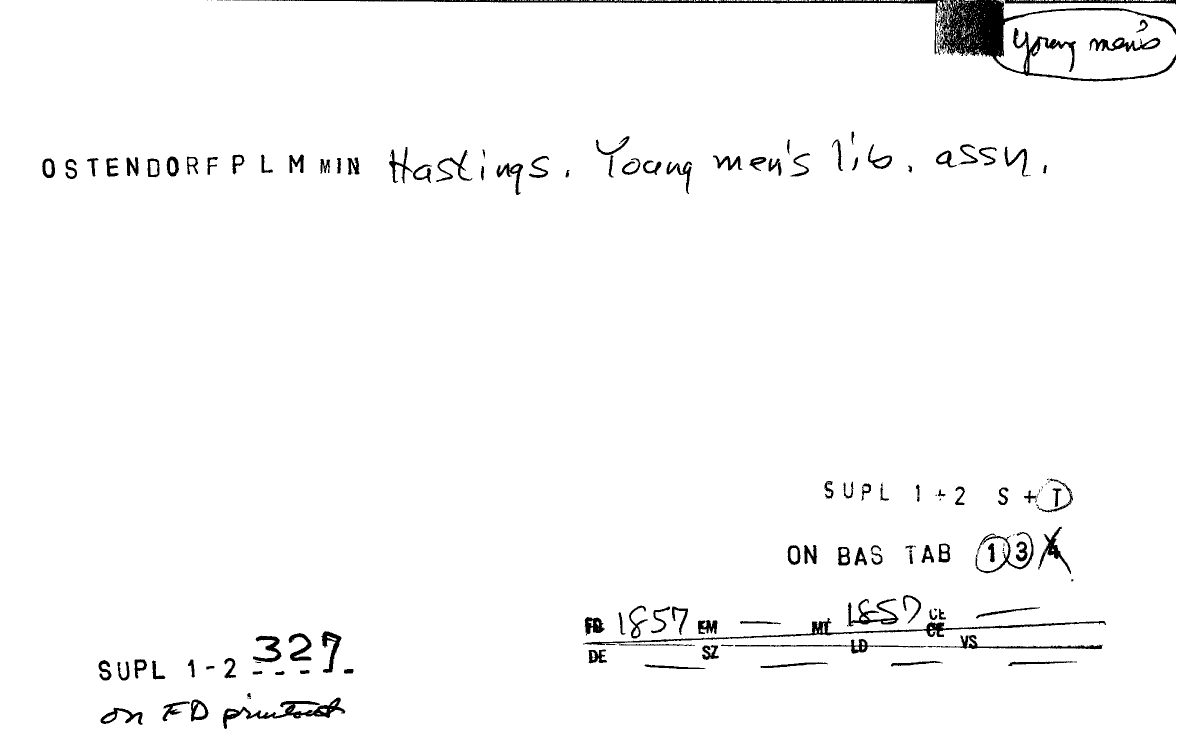 Young men's
OSTENDORF P L M MIN Hastings. Young men's lib. assn.
SUPL 1+2 S+T
ON BAS TAB 1 3 4
FD 1857 EM — MT 1857 CE CE —
DE — SZ — LD — VS —
SUPL 1-2 327
on FD printout